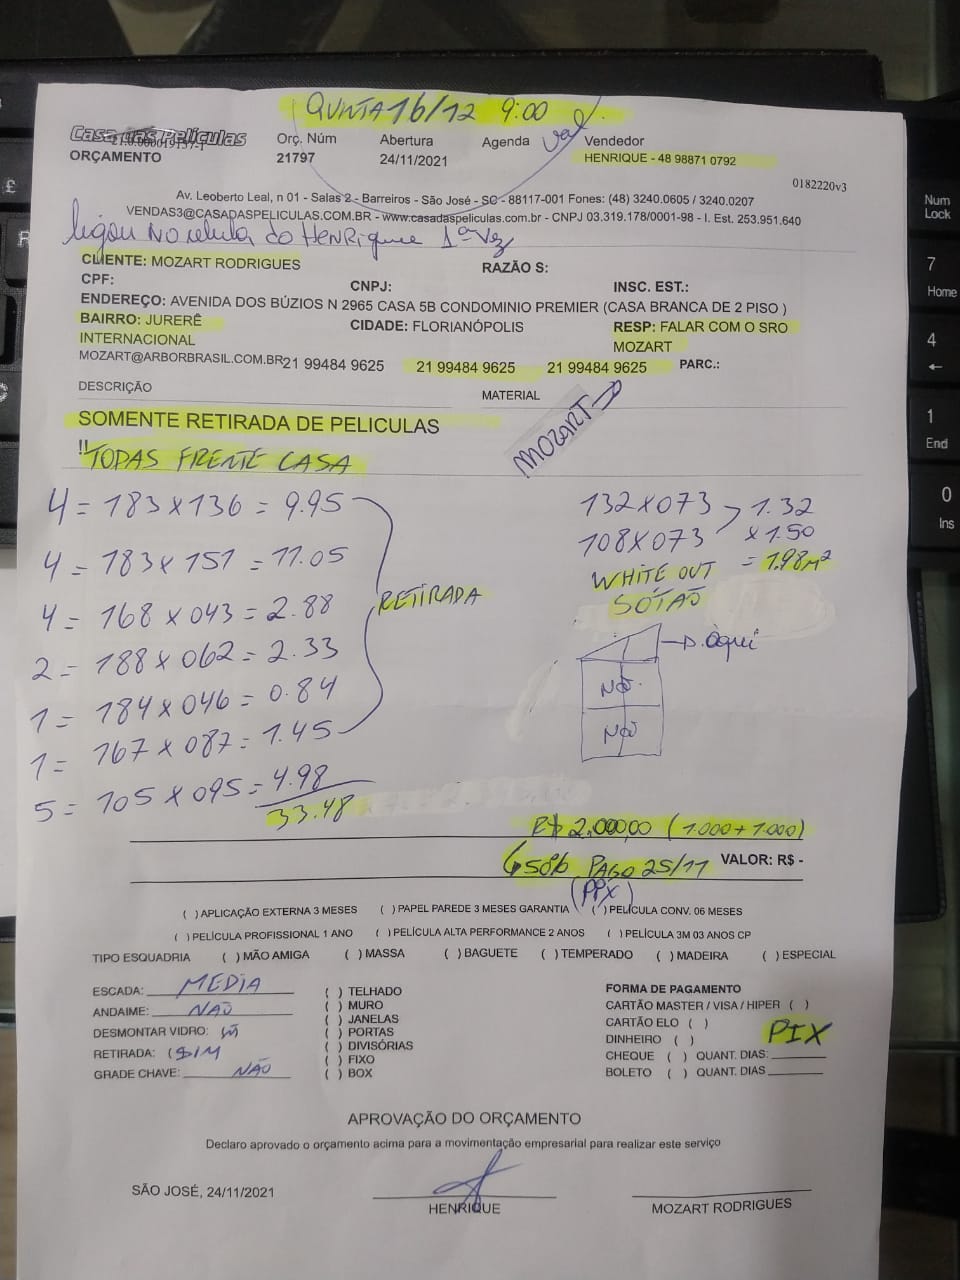 QUINTA 16/12 9:00
Casa das Películas
ORÇAMENTO
Orç. Núm
21797
Abertura
24/11/2021
Agenda
Val
Vendedor
HENRIQUE - 48 98871 0792
0182220v3
Av. Leoberto Leal, n 01 - Salas 2 - Barreiros - São José - SC - 88117-001 Fones: (48) 3240.0605 / 3240.0207
VENDAS3@CASADASPELICULAS.COM.BR - www.casadaspeliculas.com.br - CNPJ 03.319.178/0001-98 - I. Est. 253.951.640
ligou no celula do Henrique 1ª Vez
CLIENTE: MOZART RODRIGUES
RAZÃO S:
CPF:
CNPJ:
INSC. EST.:
ENDEREÇO: AVENIDA DOS BÚZIOS N 2965 CASA 5B CONDOMINIO PREMIER (CASA BRANCA DE 2 PISO )
BAIRRO: JURERÊ INTERNACIONAL
CIDADE: FLORIANÓPOLIS
RESP: FALAR COM O SRO MOZART
MOZART@ARBORBRASIL.COM.BR 21 99484 9625
21 99484 9625
21 99484 9625
PARC.:
DESCRIÇÃO
MATERIAL
SOMENTE RETIRADA DE PELICULAS
MOZART
!! TODAS FRENTE CASA
4 = 183 x 136 = 9.95
4 = 183 x 151 = 11.05
4 = 168 x 043 = 2.88
2 = 188 x 062 = 2.33
1 = 184 x 046 = 0.84
1 = 167 x 087 = 1.45
5 = 105 x 095 = 4.98
33.48
RETIRADA
132 x 073 1.32
108 x 073 x 1.50
WHITE OUT = 1.98 m²
SÓTÃO
P. àqui
NÃO
NÃO
R$ 2.000,00 (1.000 + 1.000)
50% PAGO 25/11
VALOR: R$ -
(PPX)
( ) APLICAÇÃO EXTERNA 3 MESES ( ) PAPEL PAREDE 3 MESES GARANTIA ( ) PELÍCULA CONV. 06 MESES
( ) PELÍCULA PROFISSIONAL 1 ANO ( ) PELÍCULA ALTA PERFORMANCE 2 ANOS ( ) PELÍCULA 3M 03 ANOS CP
TIPO ESQUADRIA ( ) MÃO AMIGA ( ) MASSA ( ) BAGUETE ( ) TEMPERADO ( ) MADEIRA ( ) ESPECIAL
ESCADA: MEDIA
ANDAIME: NÃO
DESMONTAR VIDRO:
RETIRADA: (SIM
GRADE CHAVE: NÃO
( ) TELHADO
( ) MURO
( ) JANELAS
( ) PORTAS
( ) DIVISÓRIAS
( ) FIXO
( ) BOX
FORMA DE PAGAMENTO
CARTÃO MASTER / VISA / HIPER ( )
CARTÃO ELO ( )
DINHEIRO ( )
PIX
CHEQUE ( ) QUANT. DIAS:
BOLETO ( ) QUANT. DIAS
APROVAÇÃO DO ORÇAMENTO
Declaro aprovado o orçamento acima para a movimentação empresarial para realizar este serviço
SÃO JOSÉ, 24/11/2021
HENRIQUE
MOZART RODRIGUES
£
Num Lock
7
Home
4
1
End
0
Ins